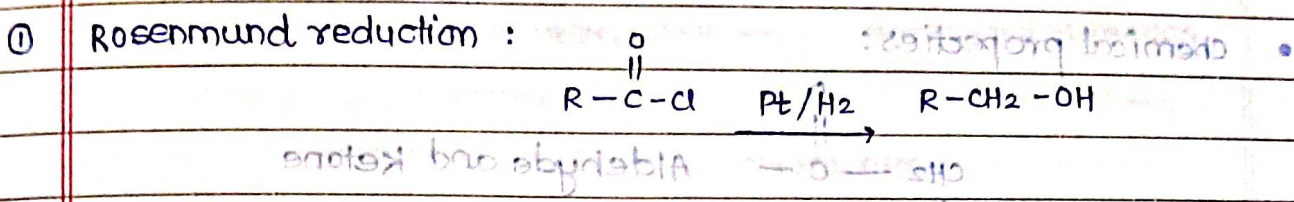 ① Rosenmund reduction :
O
||
R-C-Cl Pt/H2 R-CH2-OH